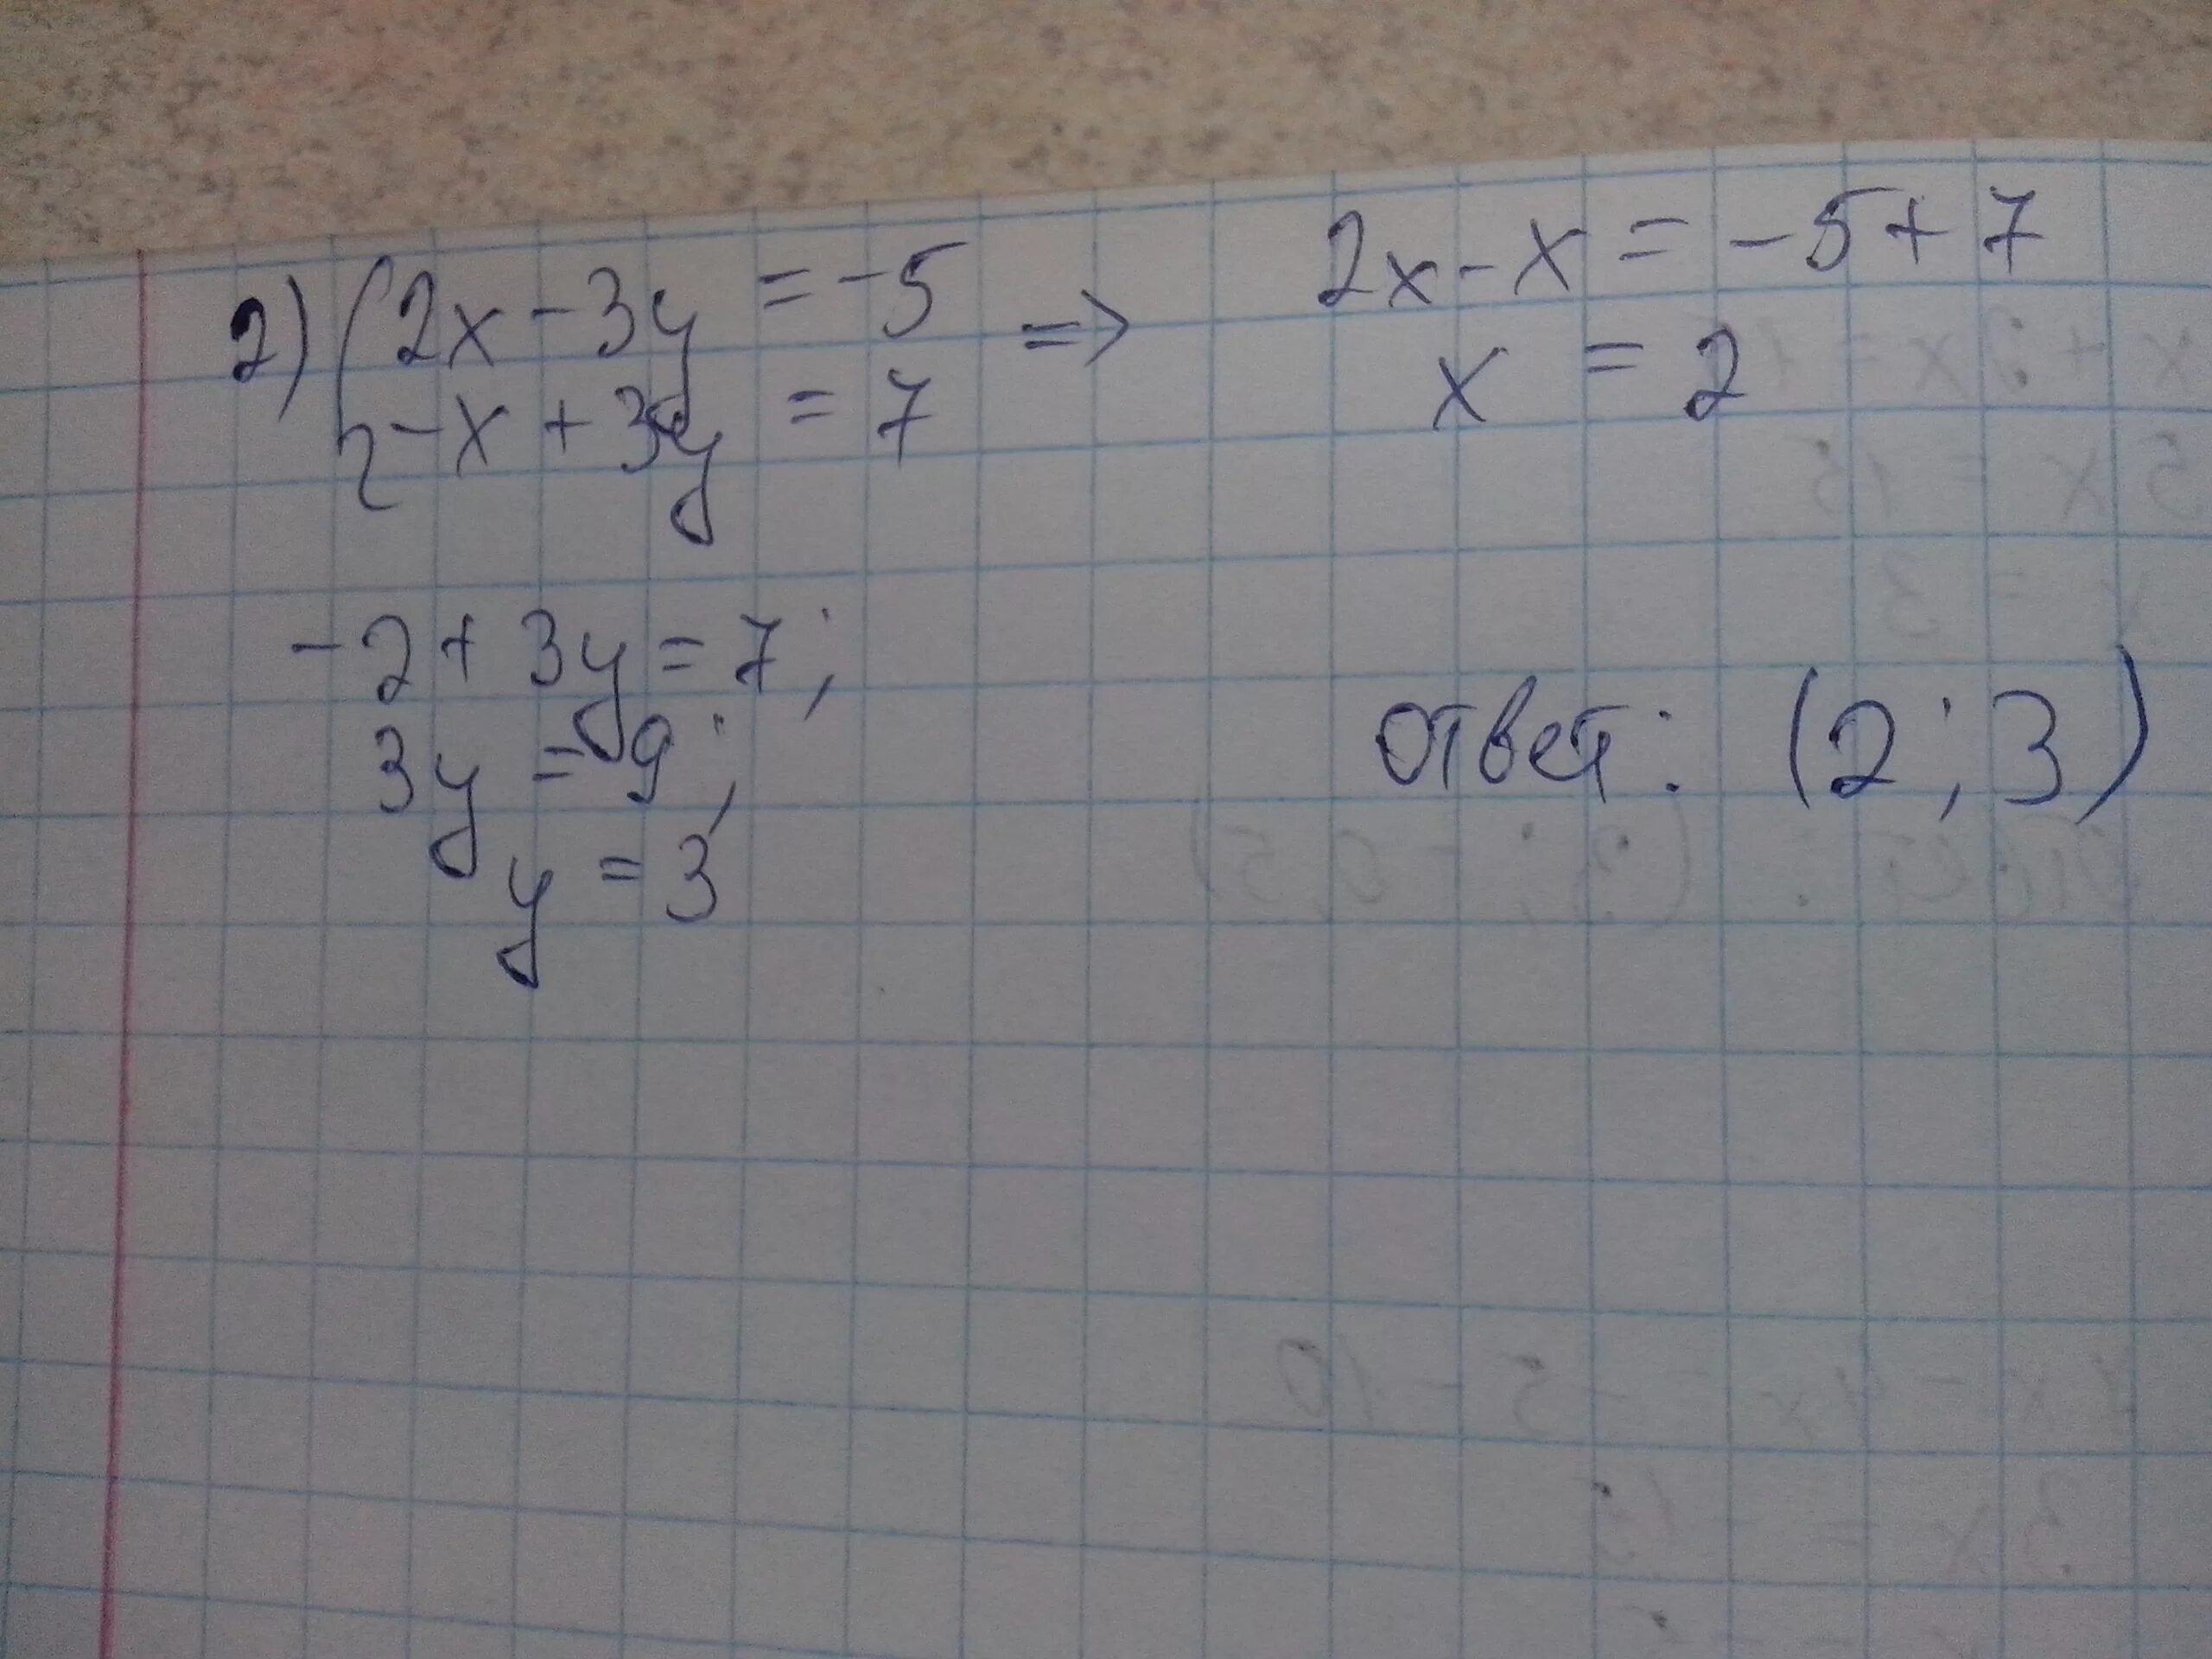 2) { 2x - 3y = -5 =>
-x + 3y = 7
2x - x = -5 + 7
x = 2
-2 + 3y = 7;
3y = 9;
y = 3
Ответ: (2; 3)